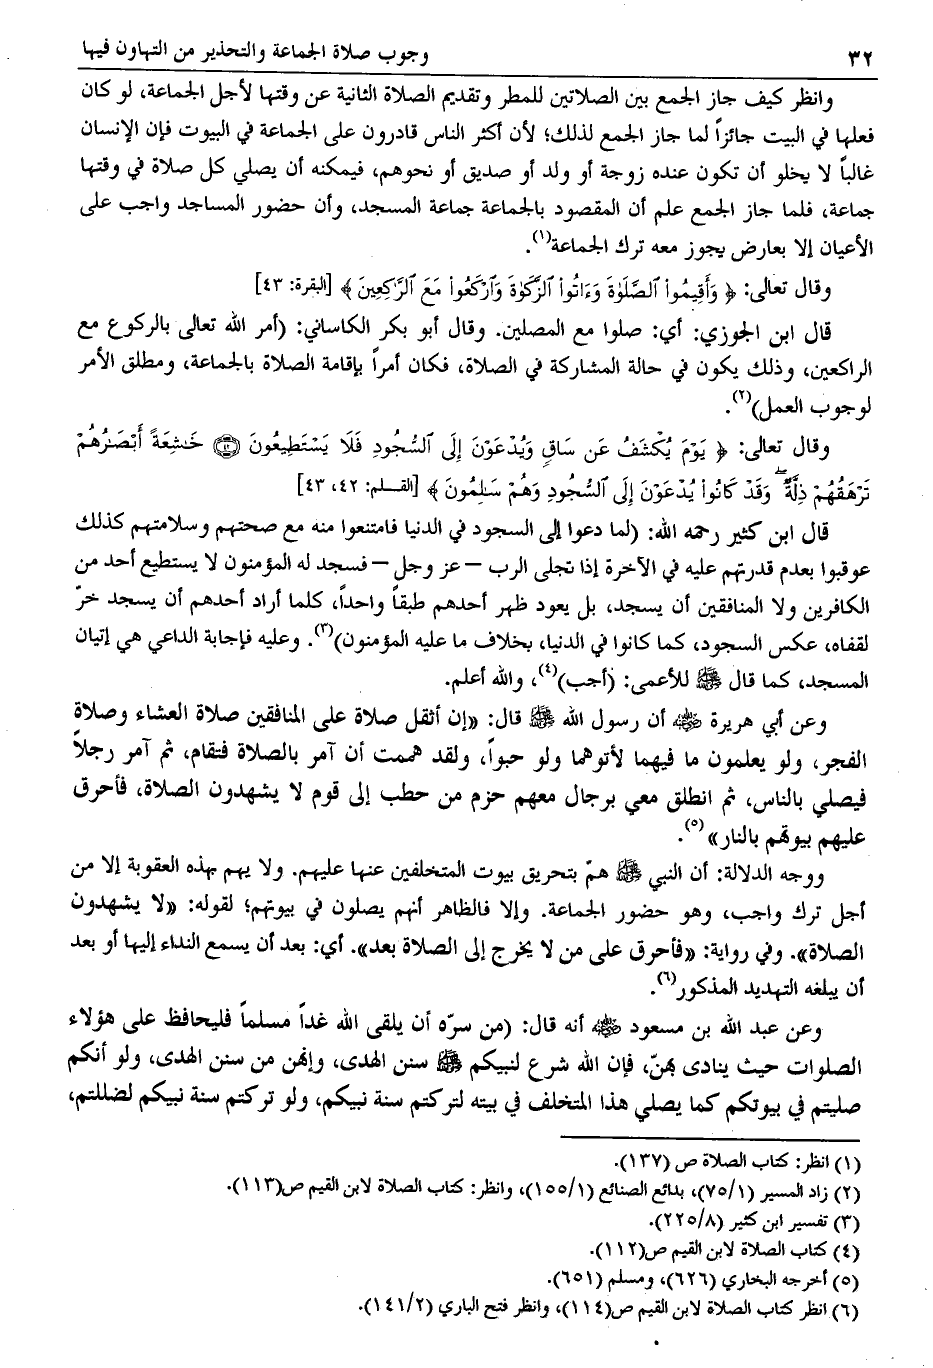 ٣٢
وجوب صلاة الجماعة والتحذير من التهاون فيها
وانظر كيف جاز الجمع بين الصلاتين للمطر وتقديم الصلاة الثانية عن وقتها لأجل الجماعة، لو كان
فعلها في البيت جائزاً لما جاز الجمع لذلك؛ لأن أكثر الناس قادرون على الجماعة في البيوت فإن الإنسان
غالباً لا يخلو أن تكون عنده زوجة أو ولد أو صديق أو نحوهم، فيمكنه أن يصلي كل صلاة في وقتها
جماعة، فلما جاز الجمع علم أن المقصود بالجماعة جماعة المسجد، وأن حضور المساجد واجب على
الأعيان إلا بعارض يجوز معه ترك الجماعة(١).
وقال تعالى: ﴿ وَأَقِيمُوا۟ ٱلصَّلَوٰةَ وَءَاتُوا۟ ٱلزَّكَوٰةَ وَٱرْكَعُوا۟ مَعَ ٱلرَّٰكِعِينَ ﴾ [البقرة: ٤٣]
قال ابن الجوزي: أي: صلوا مع المصلين. وقال أبو بكر الكاساني: (أمر الله تعالى بالركوع مع
الراكعين، وذلك يكون في حالة المشاركة في الصلاة، فكان أمراً بإقامة الصلاة بالجماعة، ومطلق الأمر
لوجوب العمل)(٢).
وقال تعالى: ﴿ يَوْمَ يُكْشَفُ عَن سَاقٍ وَيُدْعَوْنَ إِلَى ٱلسُّجُودِ فَلَا يَسْتَطِيعُونَ ۝٤٢ خَٰشِعَةً أَبْصَٰرُهُمْ
تَرْهَقُهُمْ ذِلَّةٌۖ وَقَدْ كَانُوا۟ يُدْعَوْنَ إِلَى ٱلسُّجُودِ وَهُمْ سَٰلِمُونَ ﴾ [القـلـم: ٤٢، ٤٣]
قال ابن كثير رحمه الله: (لما دعوا إلى السجود في الدنيا فامتنعوا منه مع صحتهم وسلامتهم كذلك
عوقبوا بعدم قدرتهم عليه في الآخرة إذا تجلى الرب – عز وجل – فسجد له المؤمنون لا يستطيع أحد من
الكافرين ولا المنافقين أن يسجد، بل يعود ظهر أحدهم طبقاً واحداً، كلما أراد أحدهم أن يسجد خرّ
لقفاه، عكس السجود، كما كانوا في الدنيا، بخلاف ما عليه المؤمنون)(٣). وعليه فإجابة الداعي هي إتيان
المسجد، كما قال ﷺ للأعمى: (أجب)(٤)، والله أعلم.
وعن أبي هريرة ﵁ أن رسول الله ﷺ قال: «إن أثقل صلاة على المنافقين صلاة العشاء وصلاة
الفجر، ولو يعلمون ما فيهما لأتوهما ولو حبواً، ولقد هممت أن آمر بالصلاة فتقام، ثم آمر رجلاً
فيصلي بالناس، ثم انطلق معي برجال معهم حزم من حطب إلى قوم لا يشهدون الصلاة، فأحرق
عليهم بيوتهم بالنار»(٥).
ووجه الدلالة: أن النبي ﷺ همّ بتحريق بيوت المتخلفين عنها عليهم. ولا يهم بهذه العقوبة إلا من
أجل ترك واجب، وهو حضور الجماعة. وإلا فالظاهر أنهم يصلون في بيوتهم؛ لقوله: «لا يشهدون
الصلاة». وفي رواية: «فأحرق على من لا يخرج إلى الصلاة بعد». أي: بعد أن يسمع النداء إليها أو بعد
أن يبلغه التهديد المذكور(٦).
وعن عبد الله بن مسعود ﵁ أنه قال: (من سرّه أن يلقى الله غداً مسلماً فليحافظ على هؤلاء
الصلوات حيث ينادى بهنّ، فإن الله شرع لنبيكم ﷺ سنن الهدى، وإنهن من سنن الهدى، ولو أنكم
صليتم في بيوتكم كما يصلي هذا المتخلف في بيته لتركتم سنة نبيكم، ولو تركتم سنة نبيكم لضللتم،
(١) انظر: كتاب الصلاة ص (١٣٧).
(٢) زاد المسير (٧٥/١)، بدائع الصنائع (١٥٥/١)، وانظر: كتاب الصلاة لابن القيم ص(١١٣).
(٣) تفسير ابن كثير (٢٢٥/٨).
(٤) كتاب الصلاة لابن القيم ص(١١٢).
(٥) أخرجه البخاري (٦٢٦)، ومسلم (٦٥١).
(٦) انظر كتاب الصلاة لابن القيم ص(١١٤)، وانظر فتح الباري (١٤١/٢).